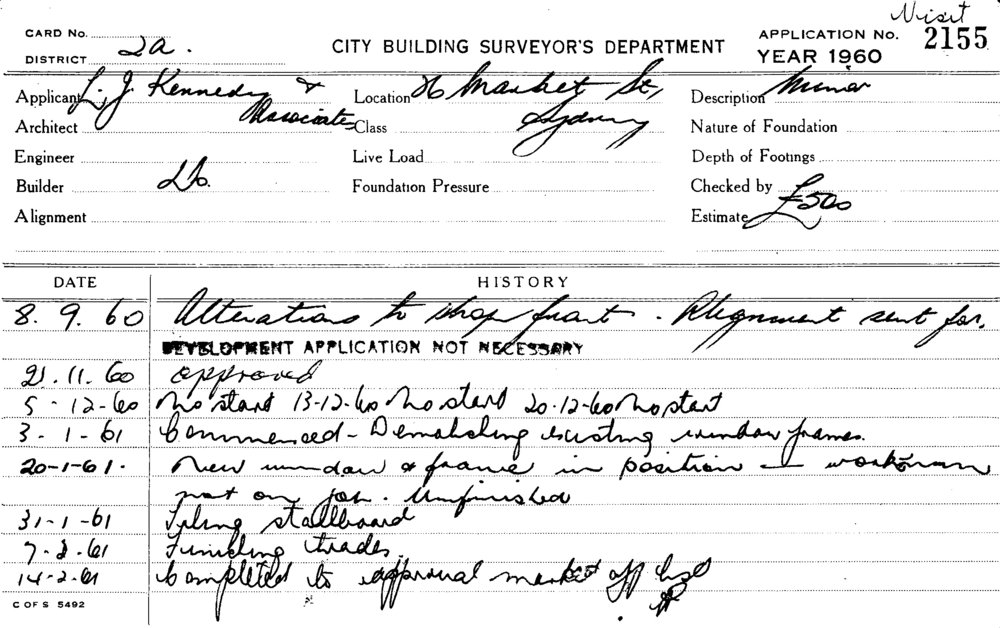 Visit
CARD No.
DISTRICT 2a.
CITY BUILDING SURVEYOR'S DEPARTMENT
APPLICATION No. 2155
YEAR 1960
Applicant L. J. Kennedy & Associates
Location 76 Market St, Sydney
Description Minor
Architect
Class
Nature of Foundation
Engineer
Live Load
Depth of Footings
Builder Do.
Foundation Pressure
Checked by
Alignment
Estimate £500
DATE HISTORY
8. 9. 60 Alterations to shop front. Alignment sent for.
DEVELOPMENT APPLICATION NOT NECESSARY
21.11.60 approved
5-12-60 No start 13-12-60 No start 20-12-60 No start
3-1-61 Commenced - Demolishing existing window frames.
20-1-61. New window & frame in position - workman
not on job. Unfinished
31-1-61 Tiling stallboard
7-2-61 Finishing trades.
14-2-61 Completed to approval marked off
C OF S 5492